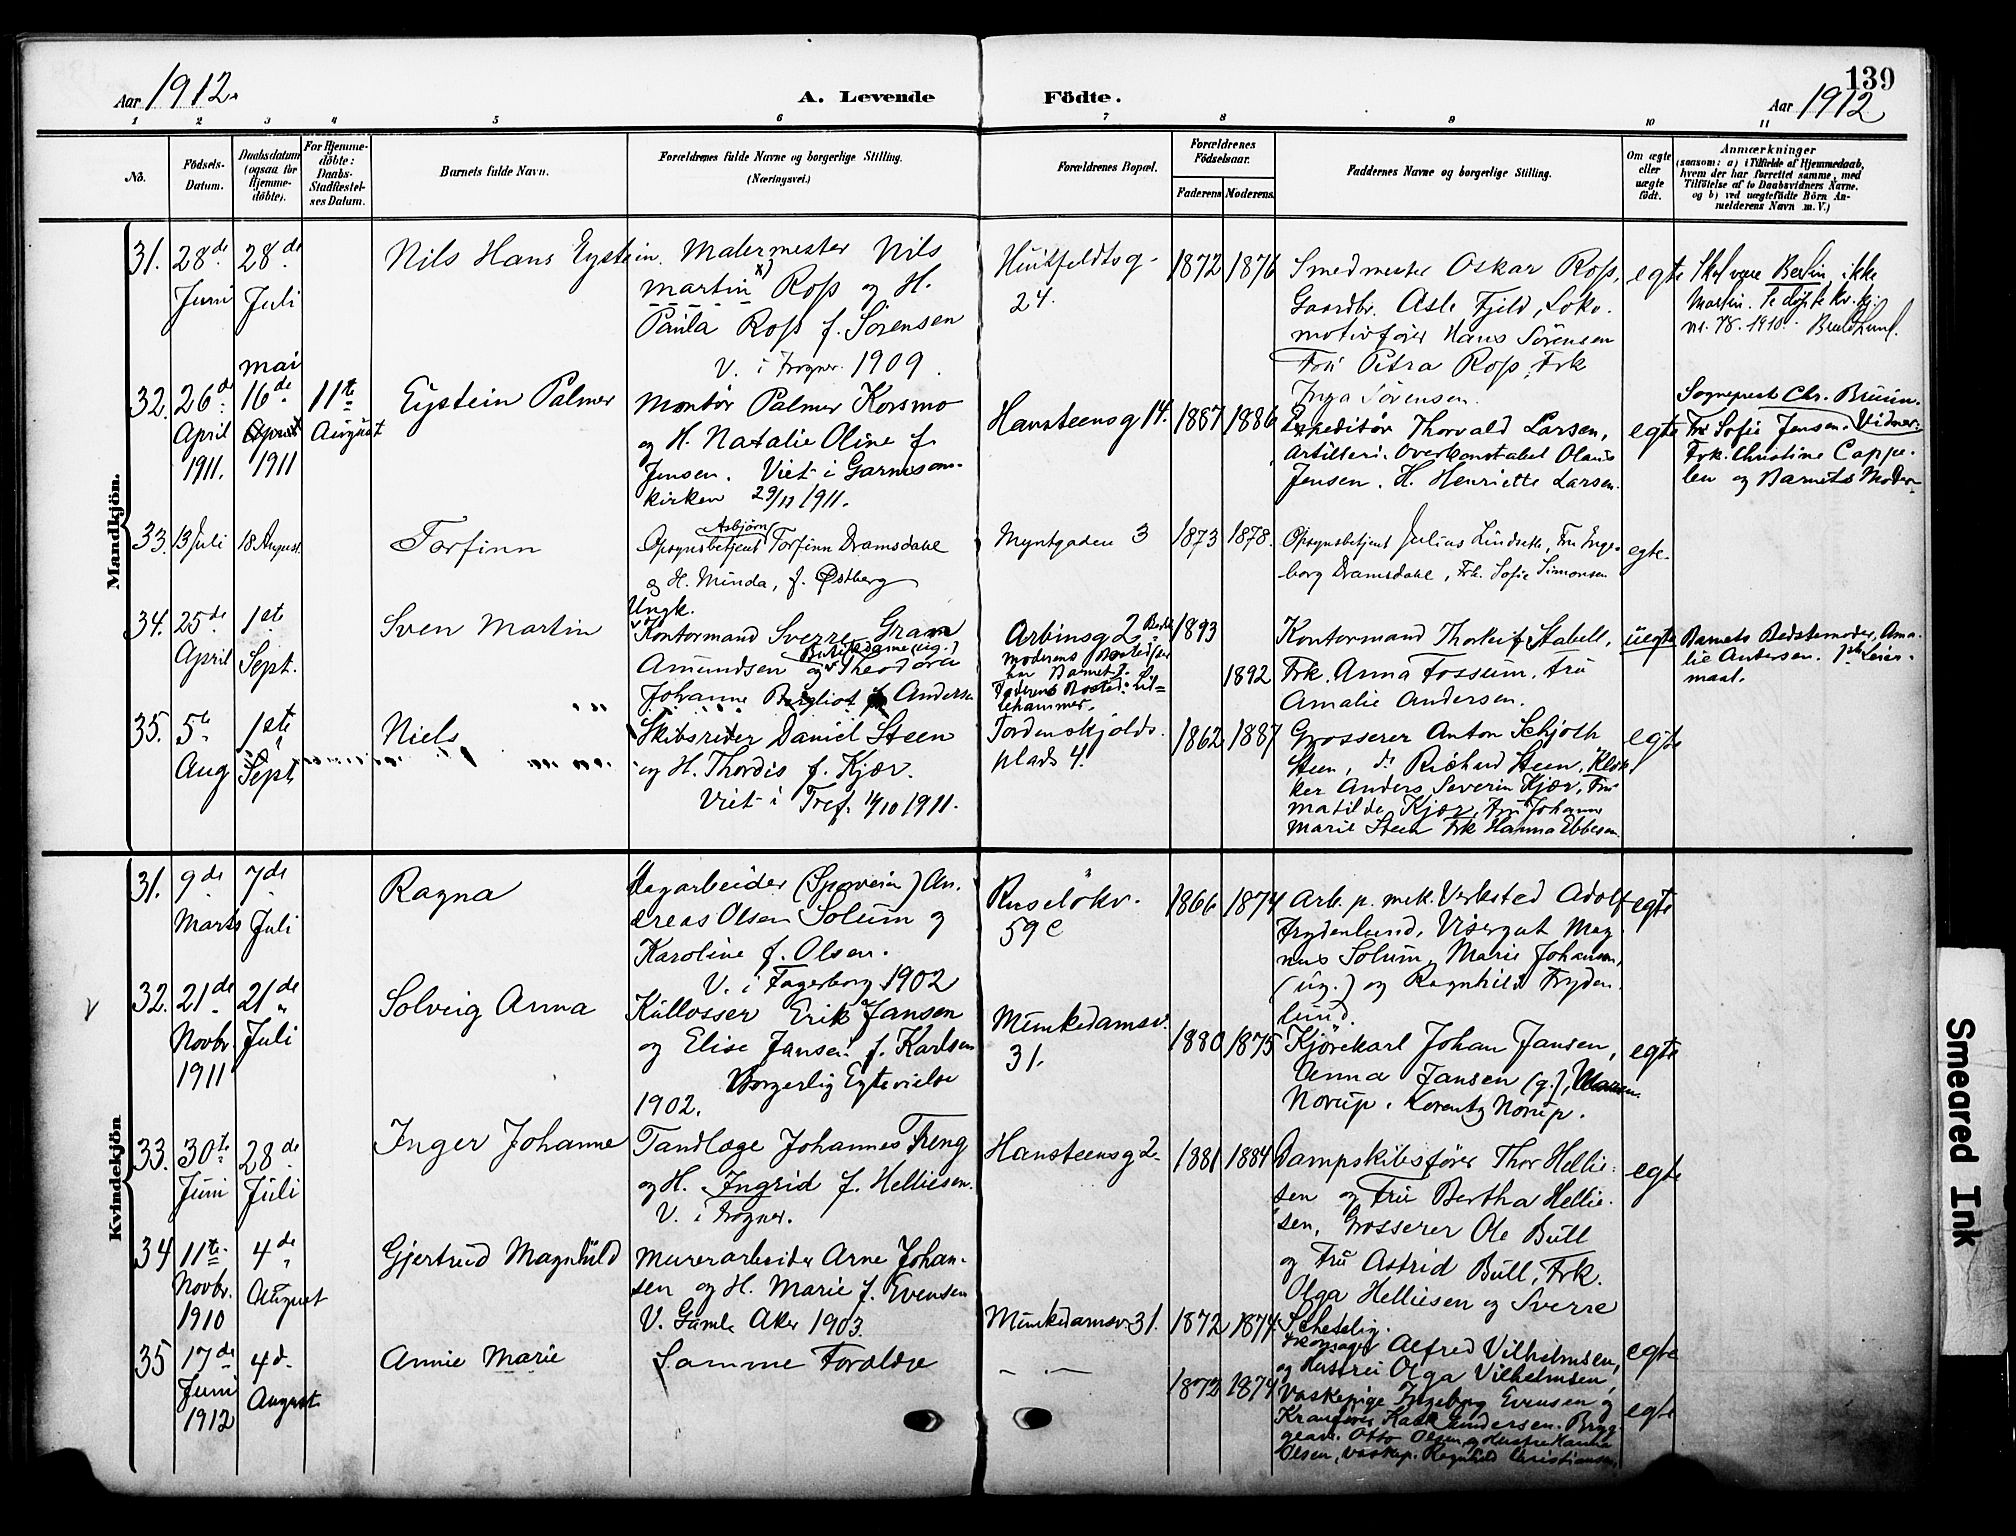 139
Aar 1912.
A. Levende
Födte.
Aar 1912
1 2 3 4 5 6 7 8 9 10 11
No.
Födsels-
Datum.
Daabsdatum
(ogsaa for
Hjemme-
döbte).
For Hjemme-
döbte:
Daabs-
Stadfæstel-
ses Datum.
Barnets fulde Navn.
Forældrenes fulde Navne og borgerlige Stilling.
(Næringsvei.)
Forældrenes Bopæl.
Forældrenes
Födselsaar.
Faderens
Moderens.
Faddernes Navne og borgerlige Stilling.
Om ægte
eller
uægte
födt.
Anmærkninger
(saasom: a) i Tilfælde af Hjemmedaab,
hvem der har forrettet samme, med
Tilföielse af to Daabsvidners Navne.
og b) ved uægtefödte Börn An-
melderens Navn m. V.)
Mandkjön.
31.
28de
Juni
28de
Juli
Nils Hans Eystein.
Malermester Nils
Martin x) Ross og H.
Paula Ross f. Sørensen
V. i Frogner 1909.
Huitfeldtsg.
24.
1872
1876
Smedmester Oskar Ross,
Gaardbr. Asle Fjeld, Loko-
motivfører Hans Sørensen
Fru Petra Ross, Frk
Inga Sørensen.
egte
Skal være Berlin ikke
Martin.
nr. 78. 1910.
32.
26de
April
1911.
mai
16de
April
1911
11te
August
Eystein Palmer
Montør Palmer Korsmo
og H. Natalie Oline f.
Jensen. Viet i Garnisons-
kirken 29/12 1911.
Hansteensg 14.
1887
1886
Expeditør Thorvald Larsen,
Artilleri-Overkonstabel Olaus
Jensen. H. Henriette Larsen.
egte
Sogneprest Chr. Bruun.
Fru Sofie Jensen. Vidner:
Frk. Christine Cappe-
len og Barnets Moder
33.
13 Juli
18 August.
Torfinn
Asbjørn
Opsynsbetjent Torfinn Dramsdahl
og H. Minda, f. Østberg
Myntgaden 3
1873
1878.
Opsynsbetjent Julius Lindseth, Fru Inge-
borg Dramsdahl, Frk. Sofie Simonsen
egte.
34.
25de
April
1ste
Sept.
Sven Martin
Ungk.
Kontormand Sverre Gram
Butikdame (ug.)
Amundsen og Theodora
Johanne Bergliot f Andersen
Arbinsg 2 Beste
moderens Bosted
har Barnet.
Faderens Bosted: Lil=
lehammer.
1893
1892
Kontormand Thorleif Stabell,
Frk. Anna Fossum. Fru
Amalie Andersen.
uegte
Barnets Bedstemoder, Ama-
lie Andersen. Leier-
maal.
35.
5te
Aug
1ste
Sept
Niels
Skibsreder Daniel Steen
og H. Thordis f. Kjær.
Viet i Tref. 4/10 1911.
Tordenskjolds
plads 4.
1862
1887
Grosserer Anton Schjøth
Steen, do Richard Steen, Klok
ker Anders Severin Kjær, Fru
Matilde Kjær, Fru Johanne
Marie Steen Frk Hanna Ebbesen.
egte
Kvindekjön
31.
9de
Marts
7de
Juli
Ragna
Dagarbeider (Sporveien) An-
dreas Olsen Solum og
Karoline f. Olsen.
V. i Fagerborg 1902
Ruseløkv.
59 c
1866
1874
Arb. p. mek. Verksted Adolf
Frydenlund, Visergut Mag
nus Solum, Marie Johansen,
(ug.) og Ragnhild Fryden
lund.
egte
V
32.
21de
Novbr.
1911
21de
Juli
Solveig Anna
Kullosser Erik Jansen
og Elise Jansen f. Karlsen
Borgerlig Egtevielse
1902.
Munkedamsv.
31.
1880
1875
Kjørekarl Johan Jansen,
Anna Jansen (g.),
Norup. Lorentz Norup.
egte
33.
30te
Juni
28de
Juli
Inger Johanne
Tandlæge Johannes Freng
og H. Ingrid f. Helliesen.
V. i Frogner.
Hansteensg 2.
1881
1884
Dampskibsfører Thor Hellie-
sen og Fru Bertha Hellie-
sen, Grosserer Ole Bull
og Fru Astrid Bull, Frk.
Olga Helliesen og Sverre
Schetelig.
egte
34
11te
Novbr.
1910
4de
August
Gjertrud Magnhild
Murerarbeider Arne Johan-
sen og H. Marie f. Evensen
V. Gamle Aker 1903.
Munkedamsv 31.
1872
1874
Alfred Vilhelmsen,
og Hustru Olga Vilhelmsen
egte
35
17de
Juni
1912
4d.
August
Annie Marie
Samme Foraldre
— . —
1872
1874
Vaskepige Ingeborg Evensen og
Kranfører Andersen. Bryg
gearb. Otto Olsen og Hustru Hanna
Olsen, Vaskep. Ragnhild Christiansen.
egte
Smeared Ink